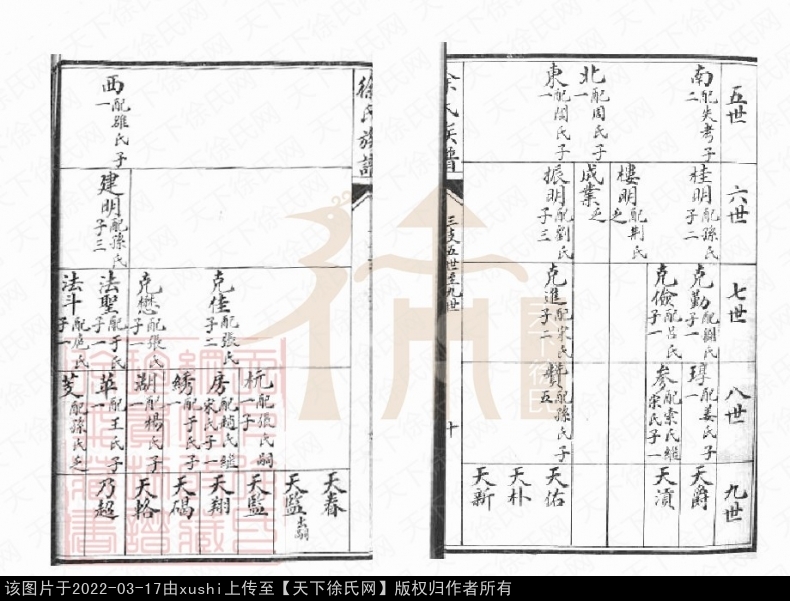 五世
南配失考子二
北配周氏子一
東配閻氏子一
六世
桂明配孫氏子二
樓明配荆氏乏
成業乏
振明配劉氏子三
七世
克勤配劉氏子一
克儉配呂氏子一
克進配宋氏子二
八世
琸配姜氏子一
参配索氏継宋氏子一
贊配孫氏子五
九世
天爵
天湏
天佑
天朴
天新
徐氏族譜
三支五世至九世
十
徐氏族譜
西配雒氏子一
建明配孫氏子三
克佳配張氏子二
克懋配張氏子一
法聖配于氏子一
法斗配扈氏子一
杭配張氏嗣子一
房配趙氏継宋氏子一
綉配于氏子一
湖配楊氏子一
革配王氏子一
芝配孫氏乏
天春
天監出嗣
天監
天翔
天碣
天格
乃超
天下徐氏网
该图片于2022-03-17由xushi上传至【天下徐氏网】版权归作者所有